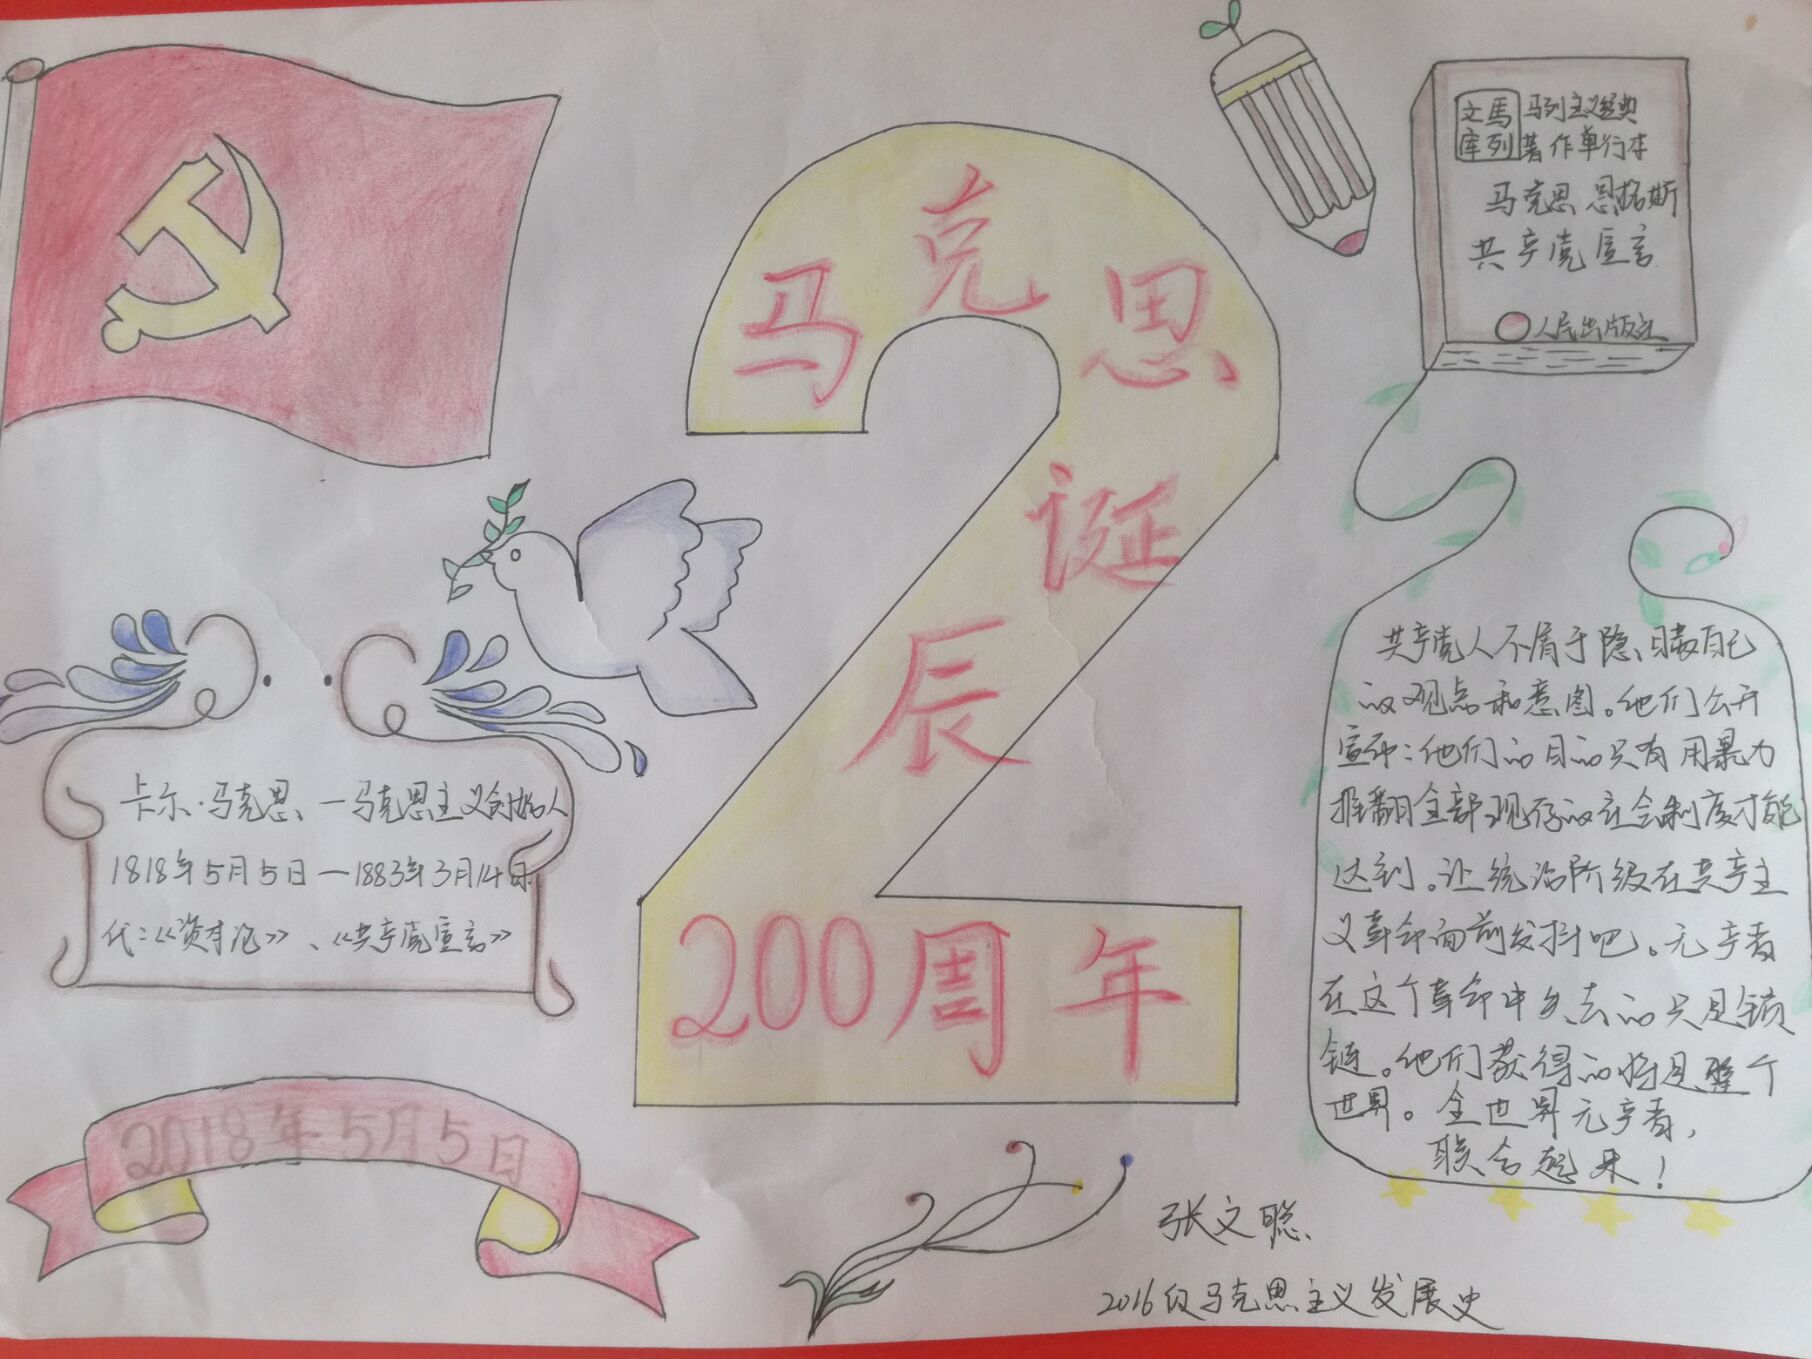 马克思
诞
辰
200周年
文馬 马列主义经典
库列 著作单行本
马克思 恩格斯
共产党宣言
人民出版社
卡尔·马克思、—马克思主义创始人
1818年5月5日—1883年3月14日
代：《资本论》、《共产党宣言》
2018年5月5日
共产党人不屑于隐瞒自己
的观点和意图。他们公开
宣称：他们的目的只有用暴力
推翻全部现存的社会制度才能
达到。让统治阶级在共产主
义革命面前发抖吧。无产者
在这个革命中失去的只是锁
链。他们获得的将是整个
世界。全世界无产者，
联合起来！
张文聪
2016级马克思主义发展史